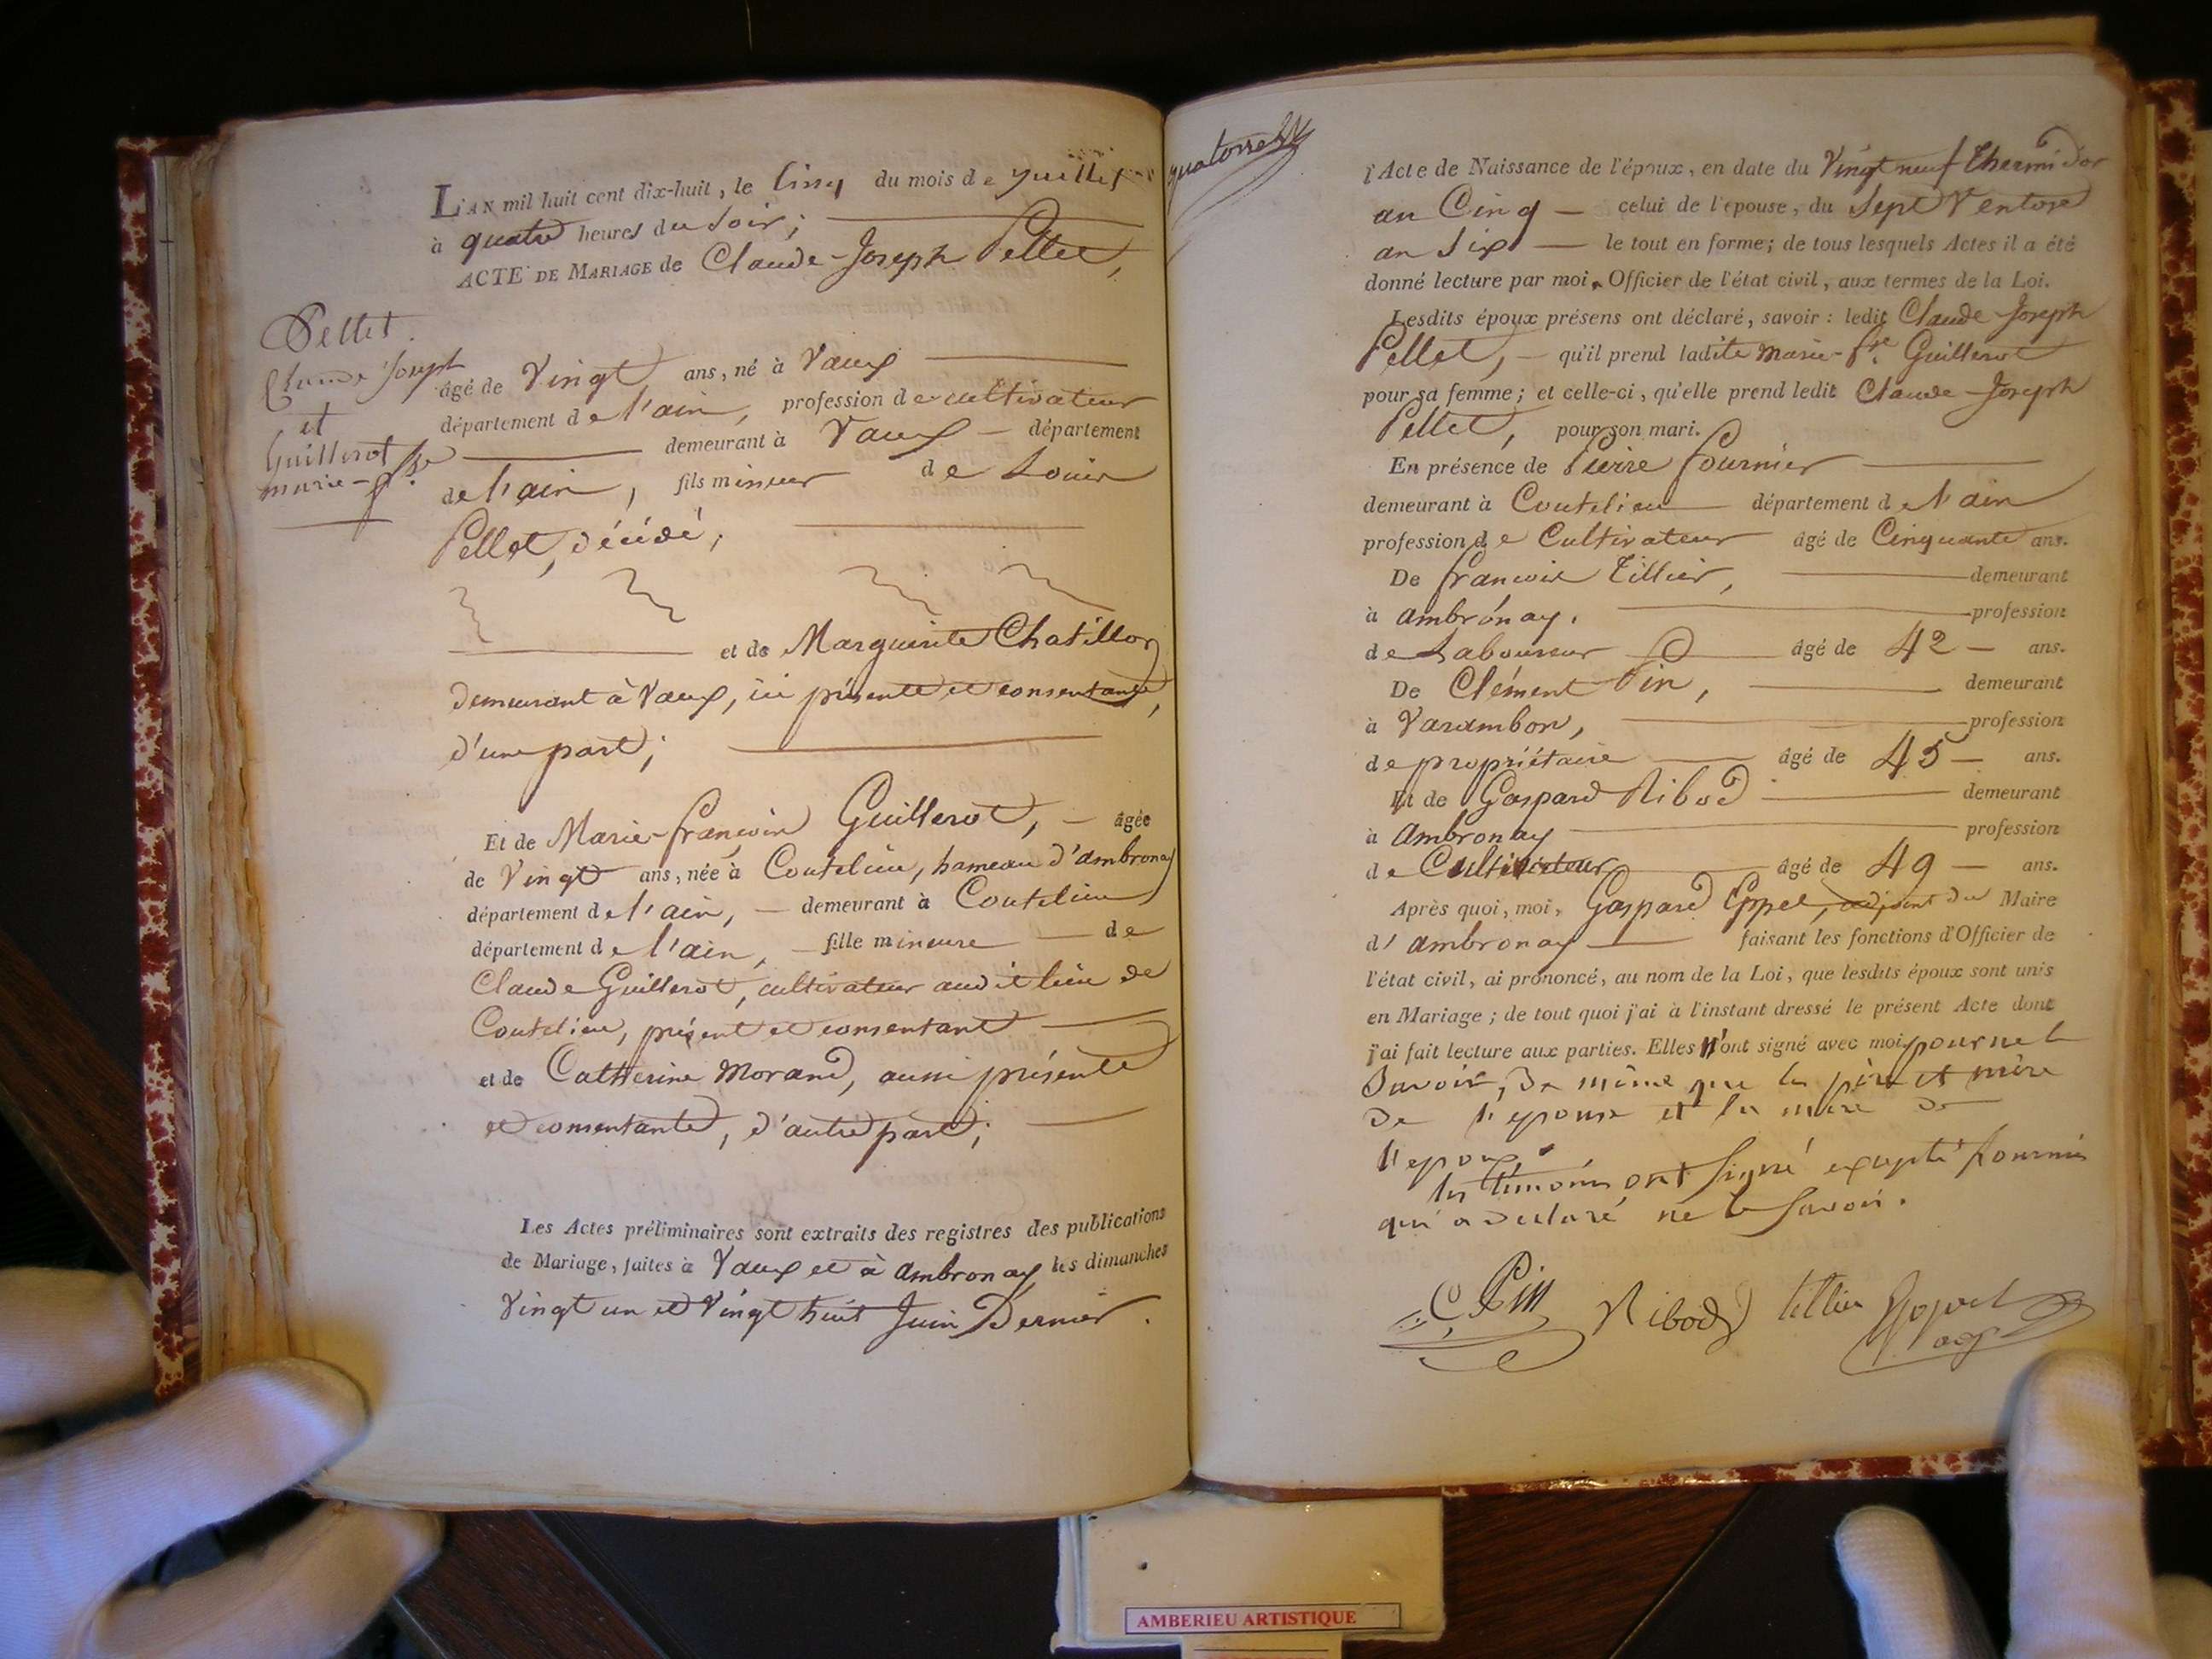 L'AN mil huit cent dix-huit, le Cinq du mois de Juillet
à quatre heures du Soir;
ACTE DE MARIAGE de Claude-Joseph Pellet,
Pellet
Claude Joseph
et
Guillerot
marie-fse
âgé de Vingt ans, né à Vaux
département de l'ain, profession de cultivateur
demeurant à Vaux — département
de l'ain, fils mineur de Louis
Pellet, décédé,
et de Marguerite Chatillon
demeurant à Vaux, ici présente et consentante,
d'une part;
Et de Marie-françoise Guillerot, — âgée
de Vingt ans, née à Coutelieu, hameau d'ambronay
département de l'ain, — demeurant à Coutelieu
département de l'ain, — fille mineure — de
Claude Guillerot, cultivateur audit lieu de
Coutelieu, présent et consentant
et de Catherine Morand, aussi présente
et consentante, d'autre part;
Les Actes préliminaires sont extraits des registres des publications
de Mariage, faites à Vaux et à Ambronay les dimanches
Vingt un et Vingt huit Juin Dernier.
quatorze
l'Acte de Naissance de l'époux, en date du Vingt neuf thermidor
an Cinq — celui de l'épouse, du Sept Ventose
an Six — le tout en forme; de tous lesquels Actes il a été
donné lecture par moi, Officier de l'état civil, aux termes de la Loi.
Lesdits époux présens ont déclaré, savoir: ledit Claude Joseph
Pellet, — qu'il prend ladite marie-fse Guillerot
pour sa femme; et celle-ci, qu'elle prend ledit Claude-Joseph
Pellet, pour son mari.
En présence de Pierre fournier
demeurant à Coutelieu département de l'ain
profession de Cultivateur âgé de Cinquante ans.
De françois Tillier, demeurant
à ambronay. profession
de Laboureur âgé de 42 — ans.
De Clément Pin, demeurant
à Varambon, profession
de propriétaire âgé de 45 — ans.
Et de Gaspard Ribod demeurant
à Ambronay profession
de Cultivateur âgé de 49 — ans.
Après quoi, moi, Gaspard Eppel, adjoint du Maire
d'ambronay faisant les fonctions d'Officier de
l'état civil, ai prononcé, au nom de la Loi, que lesdits époux sont unis
en Mariage; de tout quoi j'ai à l'instant dressé le présent Acte dont
j'ai fait lecture aux parties. Elles n'ont signé avec moi pour ne le
Savoir, de même que les père et mère
de l'epouse et la mère de
l'epoux
les témoins ont signé excepté fournier
qui a declaré ne le Savoir.
C Pin Ribod tillier Eppel
adj
AMBERIEU ARTISTIQUE